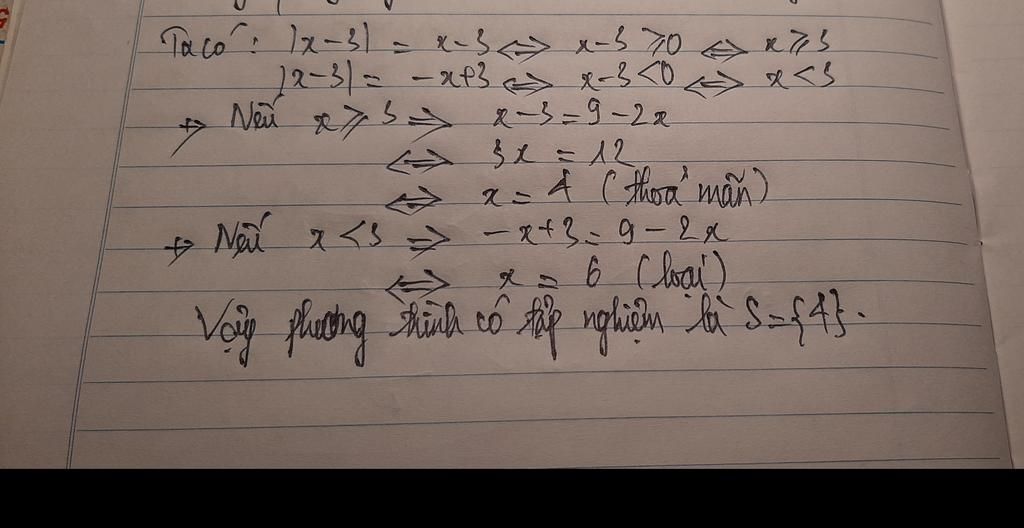 Ta có: |x-3| = x-3 ⇔ x-3 ⩾0 ⇔ x⩾3
|x-3| = -x+3 ⇔ x-3<0 ⇔ x<3
+> Nếu x⩾3 ⇒ x-3=9-2x
⇔ 3x = 12
⇔ x = 4 (thoả mãn)
+> Nếu x<3 ⇒ -x+3=9-2x
⇔ x = 6 (loại)
Vậy phương trình có tập nghiệm là S={4}.